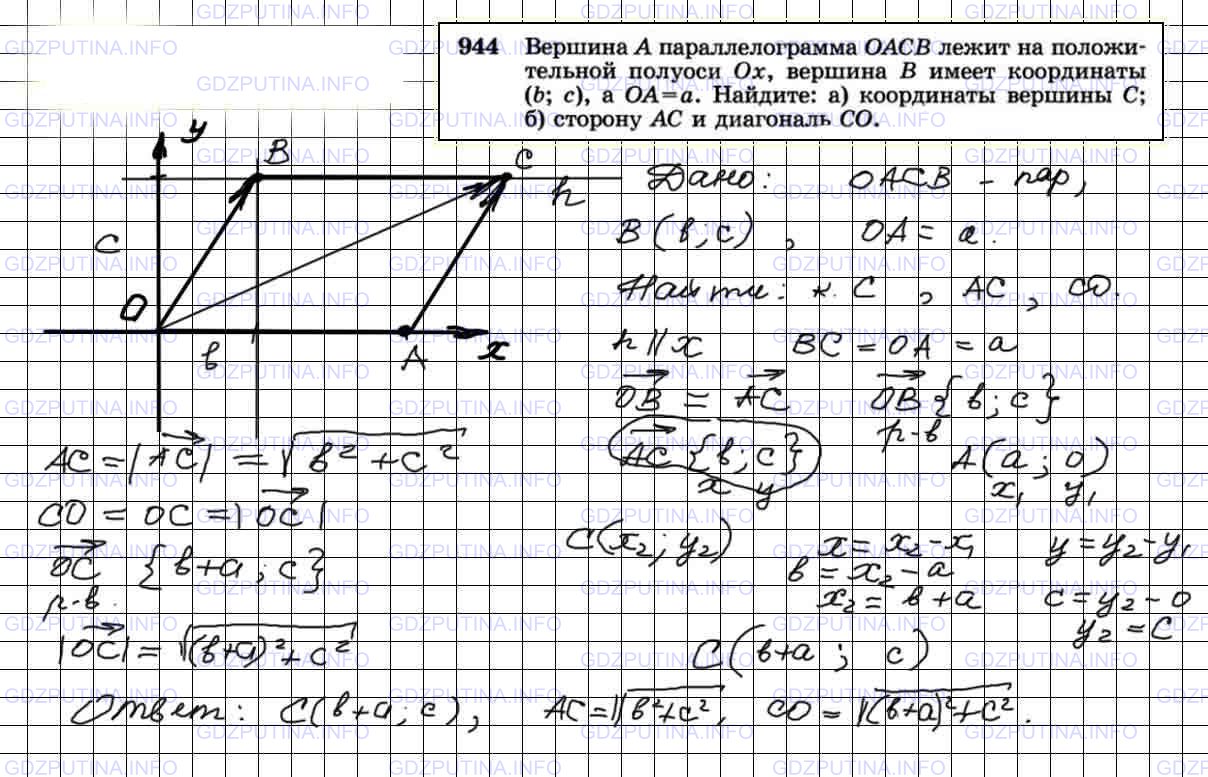 944 Вершина A параллелограмма OACB лежит на положи-
тельной полуоси Ox, вершина B имеет координаты
(b; c), а OA=a. Найдите: а) координаты вершины C;
б) сторону AC и диагональ CO.
y
B
C
h
C
O
в
A
x
Дано: OACB – пар,
B(в;c), OA = a.
Найти: к. C, AC, CO.
h || x BC = OA = a
OB = AC OB {в;c}
р-в
AC {в;c} A(a;0)
x y x₁ y₁
C(x₂; y₂) x = x₂-x₁ y = y₂-y₁
в = x₂-a
x₂ = в+a c = y₂-0
y₂ = c
C(в+a; c)
AC = |AC| = √в²+c²
CO = OC = |OC|
OC {в+a; c}
р-в.
|OC| = √(в+a)²+c²
Ответ: C(в+a; c), AC = √в²+c², CO = √(в+a)²+c².
GDZPUTINA.INFO